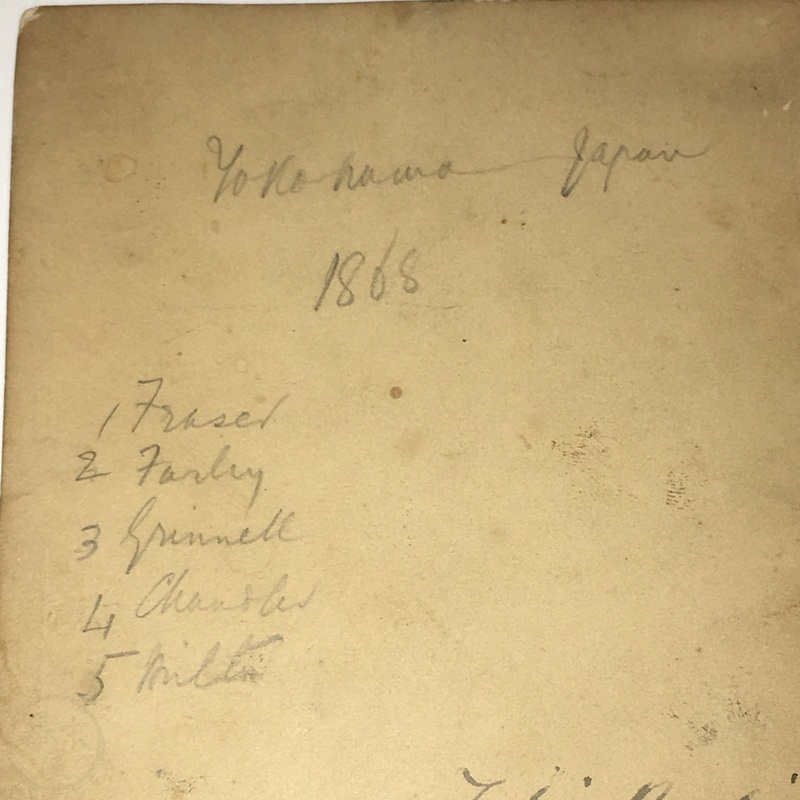 Yokohama Japan
1868
1 Fraser
2 Farley
3 Grinnell
4 Chandler
5